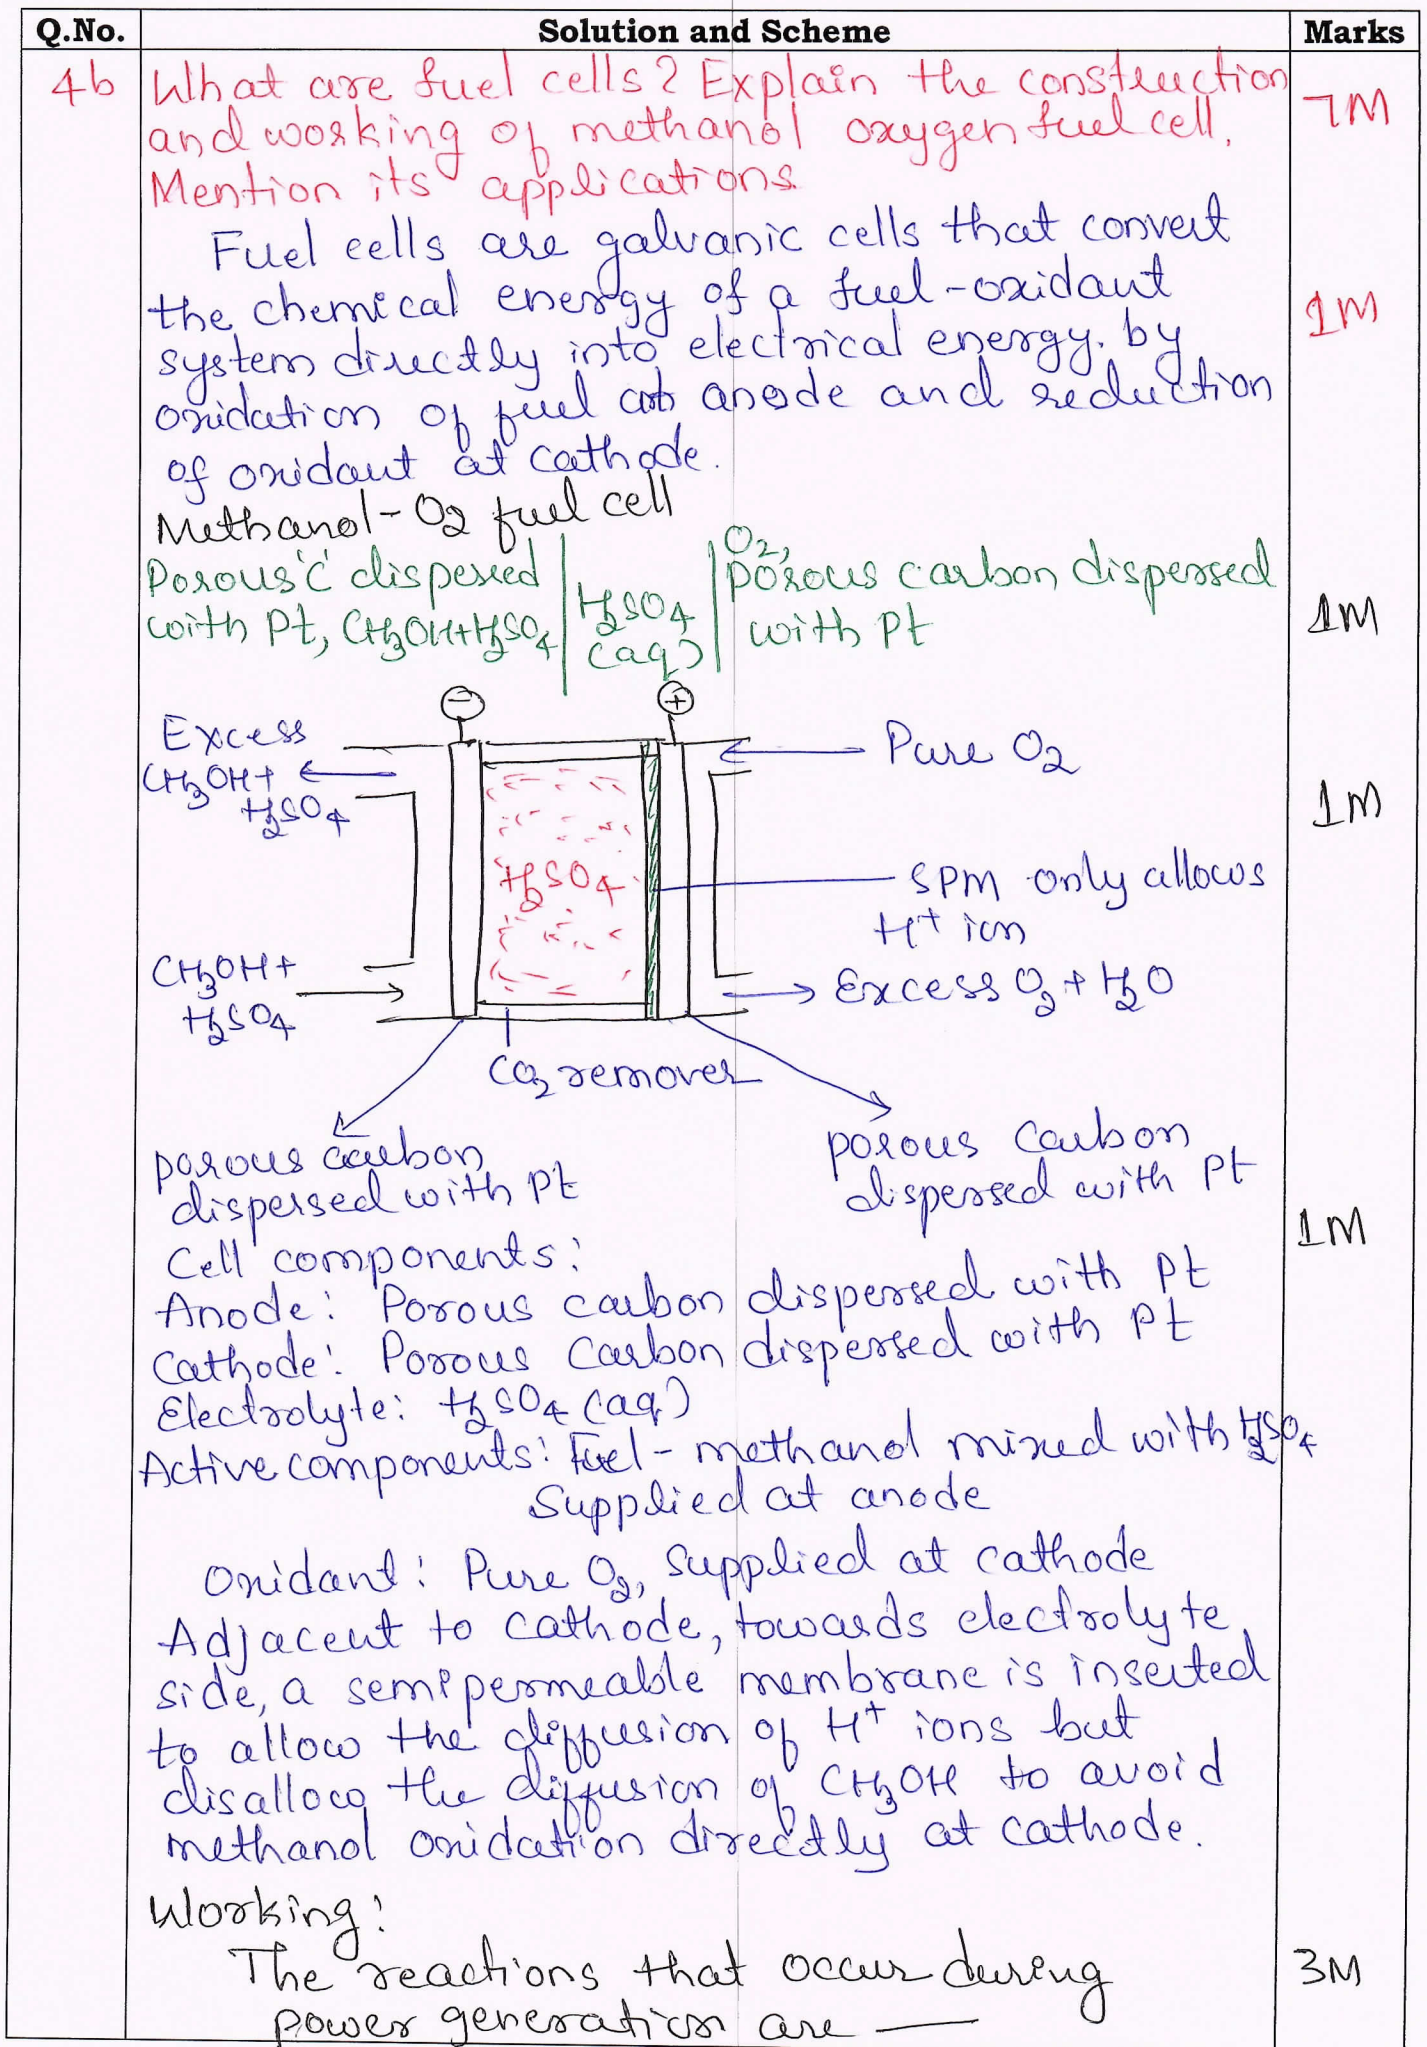 Q.No. Solution and Scheme Marks
4b What are fuel cells? Explain the construction
and working of methanol oxygen fuel cell. 7M
Mention its applications
Fuel cells are galvanic cells that convert
the chemical energy of a fuel-oxidant 1M
system directly into electrical energy. by
oxidation of fuel at anode and reduction
of oxidant at cathode.
Methanol-O2 fuel cell
Porous 'C' dispersed | H2SO4 (aq) | O2, porous carbon dispersed
with Pt, CH3OH+H2SO4 with Pt 1M
⊖ ⊕
Excess
CH3OH+
H2SO4
Pure O2
1M
H2SO4
SPM only allows
H+ ion
CH3OH+
H2SO4
Excess O2+H2O
CO2 remover
porous carbon
dispersed with Pt
porous Carbon
dispersed with Pt
Cell components: 1M
Anode: Porous carbon dispersed with Pt
Cathode: Porous Carbon dispersed with Pt
Electrolyte: H2SO4 (aq)
Active components: Fuel - methanol mixed with H2SO4
Supplied at anode
Oxidant: Pure O2, supplied at cathode
Adjacent to cathode, towards electrolyte
side, a semipermeable membrane is inserted
to allow the diffusion of H+ ions but
disallow the diffusion of CH3OH to avoid
methanol oxidation directly at cathode.
Working:
The reactions that occur during 3M
power generation are —